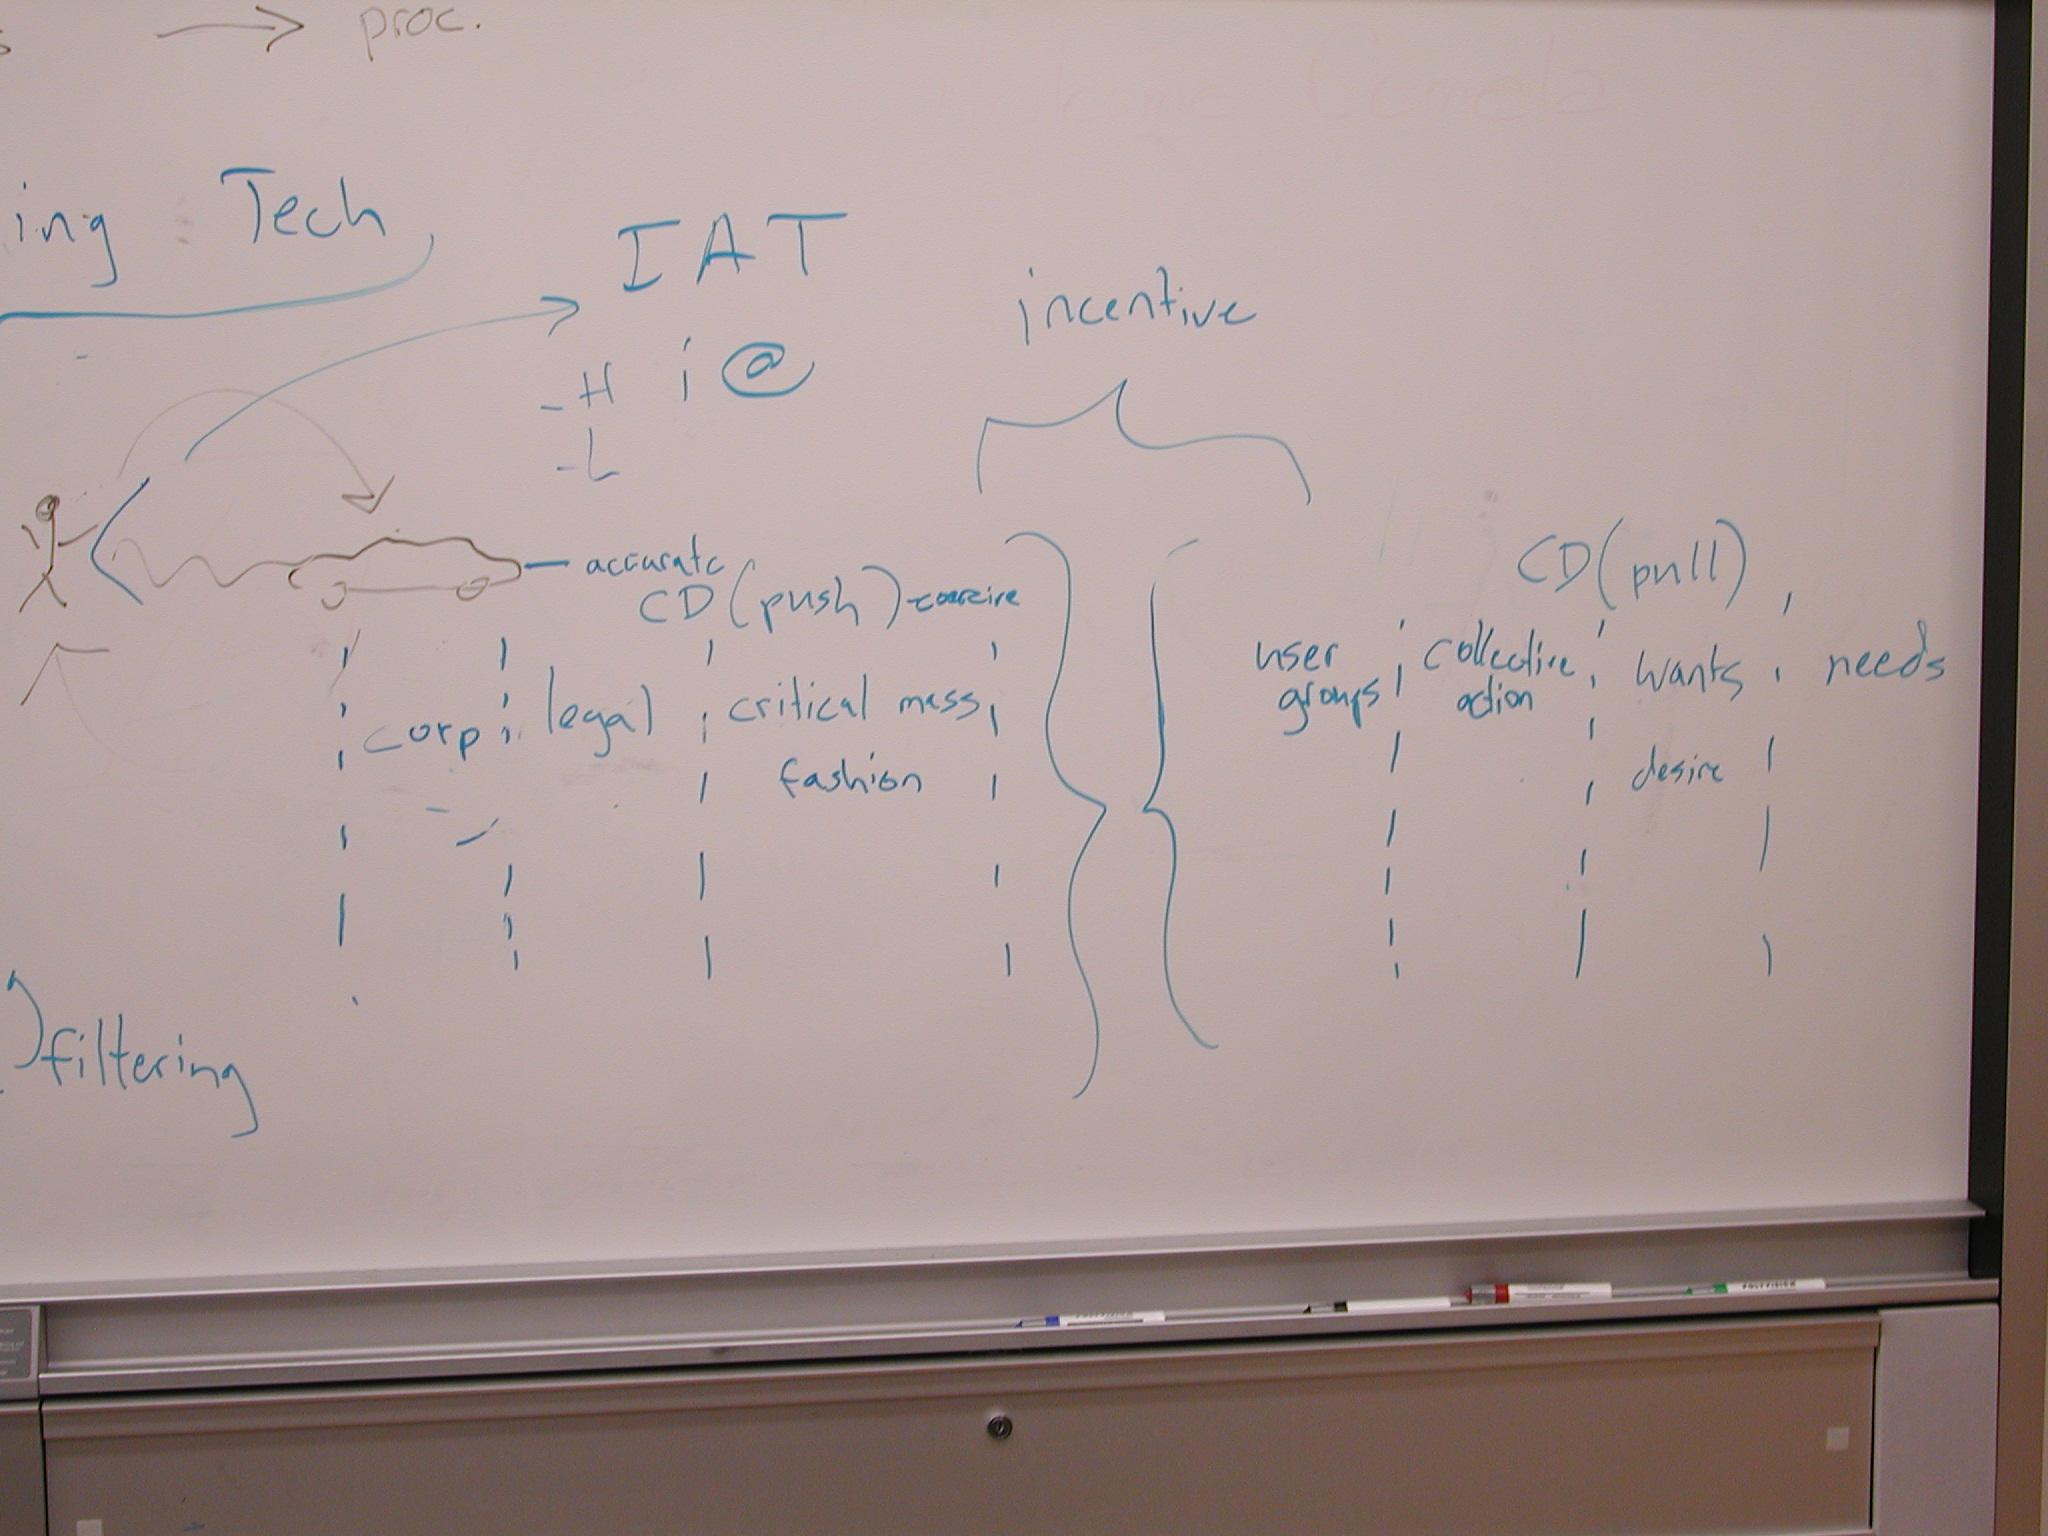 → proc.
ing Tech
IAT
incentive
- H i @
- L
— accurate
CD (push) - coercive
CD (pull)
corp legal critical mass
fashion
user groups
collective action
wants
desire
needs
filtering